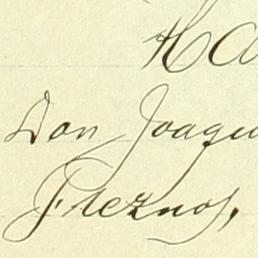 Ha
Don Joaqu
Freznos,